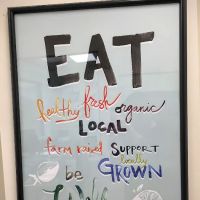 EAT
healthy fresh organic
LOCAL
farm raised SUPPORT
locally
GROWN
be